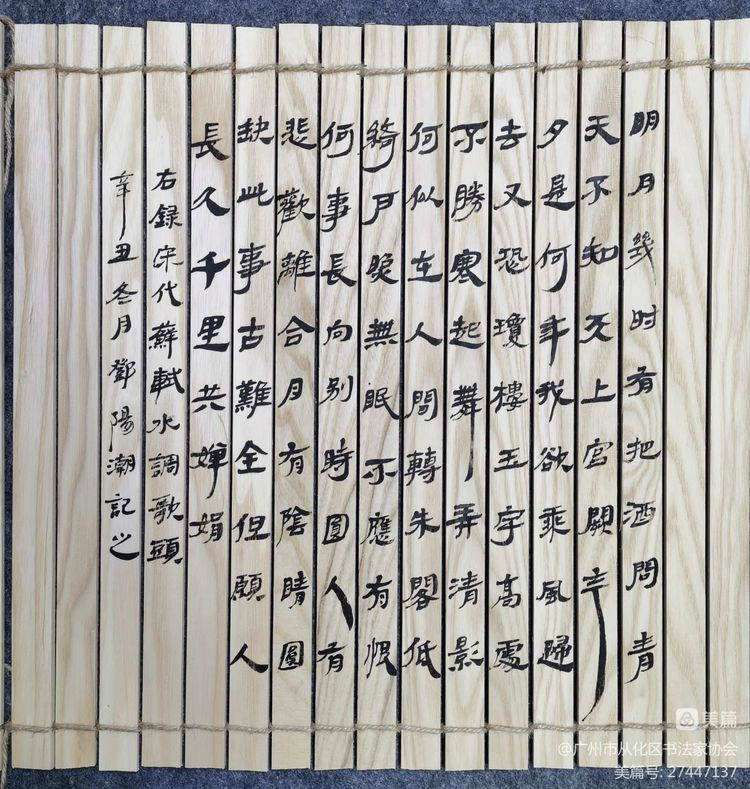 明月幾时有把酒問青
天不知天上宫闕今
夕是何年我欲乘風歸
去又恐瓊樓玉宇高處
不勝寒起舞弄清影
何似在人間轉朱閣低
綺户照無眠不應有恨
何事長向别時圓人有
悲歡離合月有陰晴圓
缺此事古難全但願人
長久千里共嬋娟
右録宋代蘇軾水調歌頭
辛丑冬月鄧陽潮記之
美篇
@广州市从化区书法家协会
美篇号: 27447137